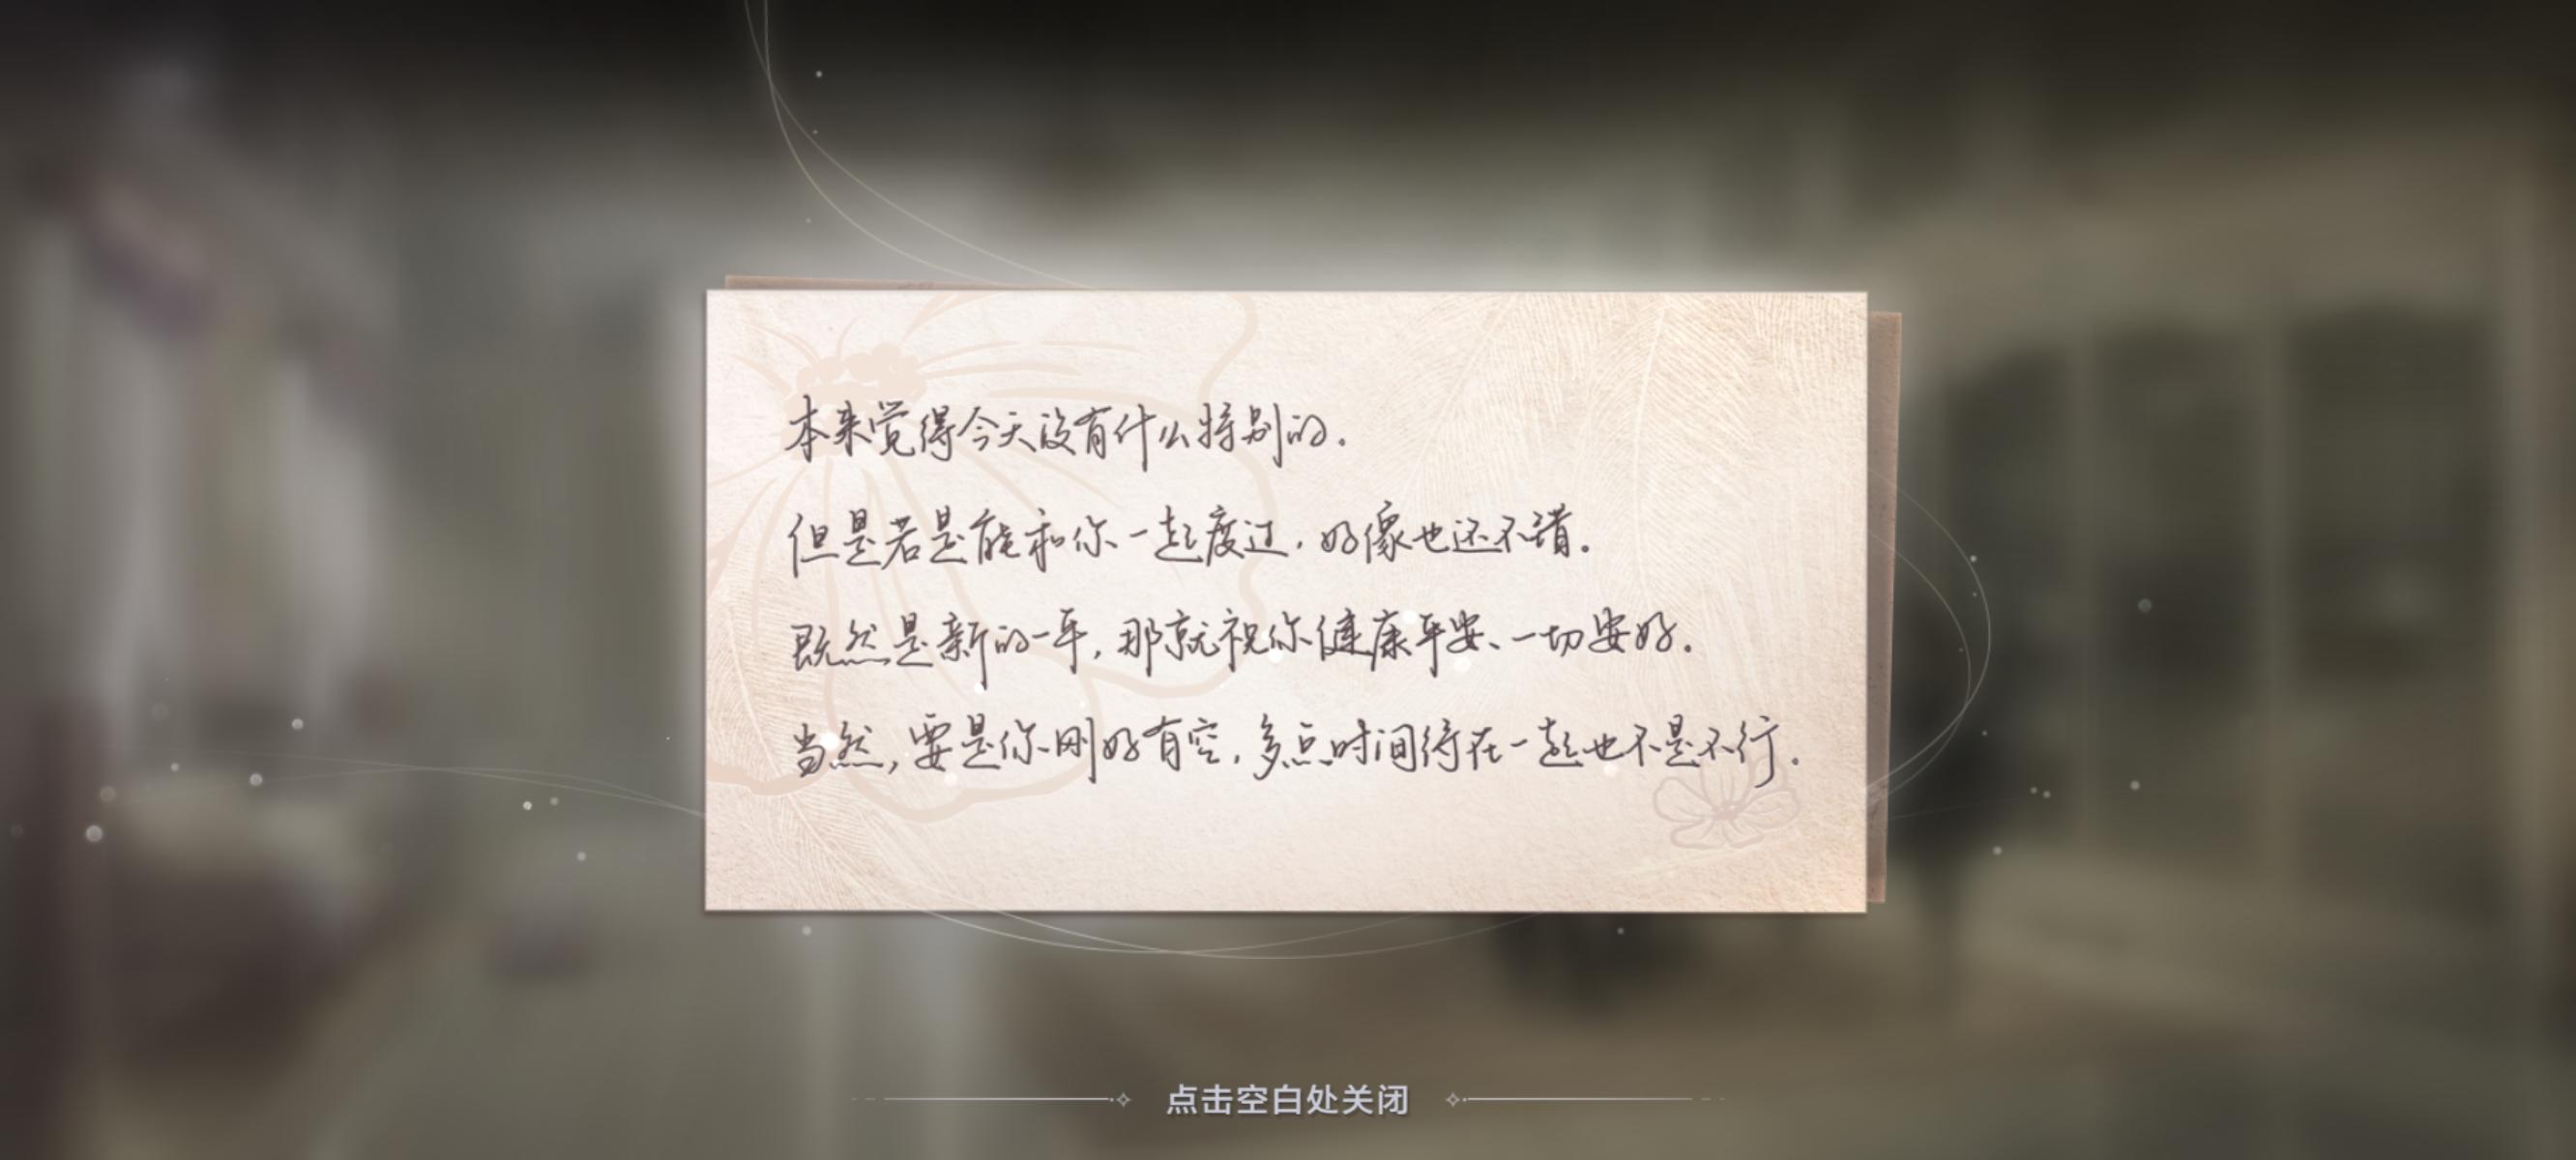 本来觉得今天没有什么特别的.
但是若是能和你一起度过,好像也还不错.
既然是新的一年,那就祝你健康平安、一切安好.
当然,要是你刚好有空,多点时间待在一起也不是不行.
点击空白处关闭